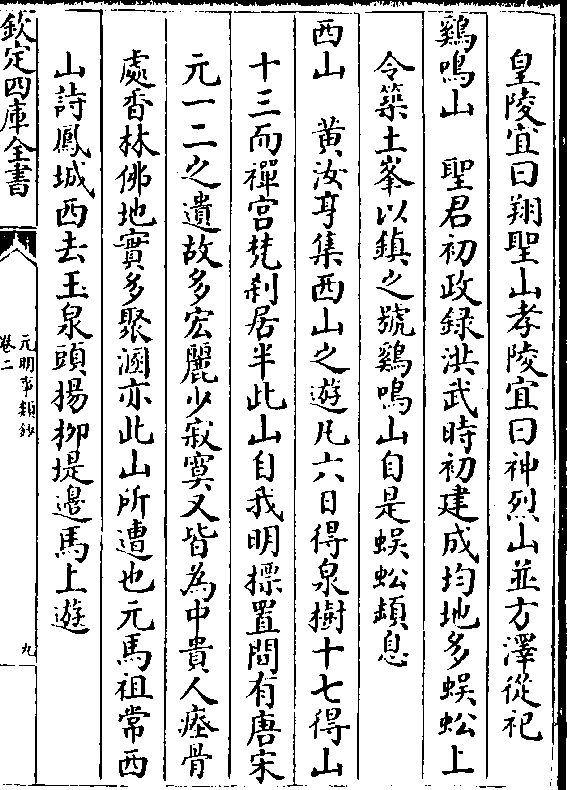 皇陵宜曰翔聖山孝陵宜曰神烈山並方澤從祀
鷄鳴山　聖君初政録洪武時初建成均地多蜈蚣上
令築土峯以鎮之號鷄鳴山自是蜈蚣頓息
西山　黄汝亨集西山之遊凡六日得泉樹十七得山
十三而禪宫梵刹居半此山自我明標置間有唐宋
元一二之遺故多宏麗少寂寞又皆為中貴人瘞骨
處香林佛地實多聚溷亦此山所遭也元馬祖常西
山詩鳳城西去玉泉頭楊柳堤邊馬上遊
欽定四庫全書
元明事類鈔
卷二
九